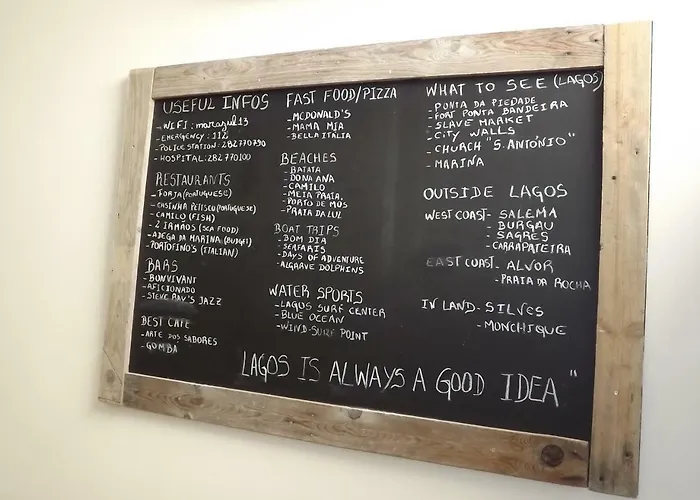 USEFUL INFOS
- WIFI : marazul13
- EMERGENCY : 112
- POLICE STATION : 282770790
- HOSPITAL : 282 770100
RESTAURANTS
- FORJA (PORTUGUESE)
- CASINHA PETISCO (PORTUGUESE)
- CAMILO (FISH)
- 2 IRMÃOS (SEA FOOD)
- ADEGA DA MARINA (BUDGET)
- PORTOFINO'S (ITALIAN)
BARS
- BONVIVANT
- AFICIONADO
- STEVE RAY'S JAZZ
BEST CAFE
- ARTE DOS SABORES
- GOMBÁ
FAST FOOD/PIZZA
- MCDONALD'S
- MAMA MIA
- BELLA ITALIA
BEACHES
- BATATA
- DONA ANA
- CAMILO
- MEIA PRAIA
- PORTO DE MÓS
- PRAIA DA LUZ
BOAT TRIPS
- BOM DIA
- SEAFARIS
- DAYS OF ADVENTURE
- ALGARVE DOLPHINS
WATER SPORTS
- LAGOS SURF CENTER
- BLUE OCEAN
- WIND-SURF POINT
WHAT TO SEE (LAGOS)
- PONTA DA PIEDADE
- FORT PONTA BANDEIRA
- SLAVE MARKET
- CITY WALLS
- CHURCH "S. ANTÓNIO"
- MARINA
OUTSIDE LAGOS
WEST COAST - SALEMA
- BURGAU
- SAGRES
- CARRAPATEIRA
EAST COAST - ALVOR
- PRAIA DA ROCHA
IN LAND - SILVES
- MONCHIQUE
LAGOS IS ALWAYS A GOOD IDEA "